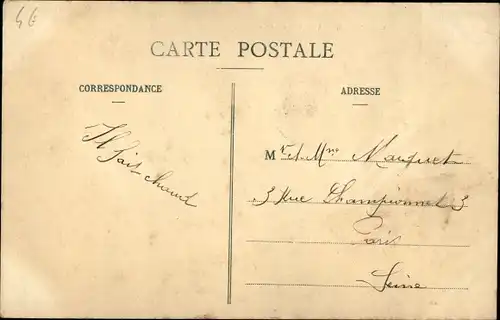 46
CARTE POSTALE
CORRESPONDANCE
ADRESSE
Il
fait chaud
Mr et Mme Marquet
3 Rue Championnet 3
Paris
Seine